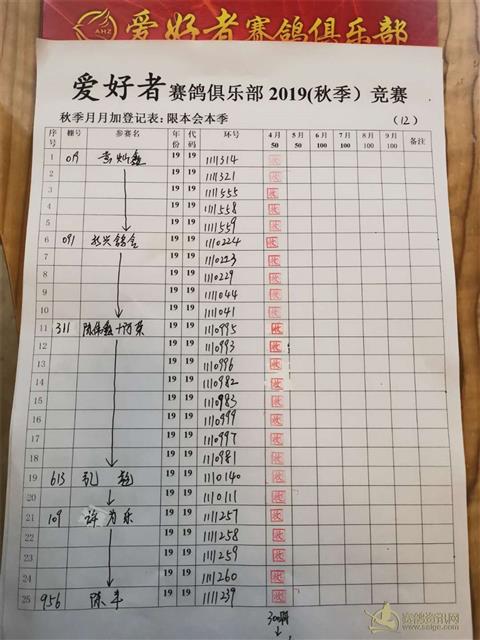 AHZ 爱好者赛鸽俱乐部
爱好者 赛鸽俱乐部 2019(秋季）竞赛
秋季月月加登记表: 限本会本季 （12）
序号 棚号 参赛名 年份 代码 环号 4月50 5月50 6月100 7月100 8月100 9月100 备注
1 019 黄灿鑫 19 19 1111314 收
2 19 19 1111321 收
3 19 19 1111555 收
4 19 19 1111558 收
5 19 19 1111559 收
6 091 兴鸽舍 19 19 1110224 收
7 19 19 1110223 收
8 19 19 1110229 收
9 19 19 1111044 收
10 19 19 1111041 收
11 311 陈 鑫+ 英 19 19 1110995 收
12 19 19 1110993 收
13 19 19 1110996 收
14 19 19 1110982 收
15 19 19 1110983 收
16 19 19 1110999 收
17 19 19 1110997 收
18 19 19 1110981 收
19 613 孔 19 19 1110140 收
20 19 19 1110111 收
21 109 许为乐 19 19 1111257 收
22 19 19 1111258 收
23 19 19 1111259 收
24 19 19 1111260 收
25 956 陈丰 19 19 1111239 收
300
赛鸽资讯网
www.saige.com